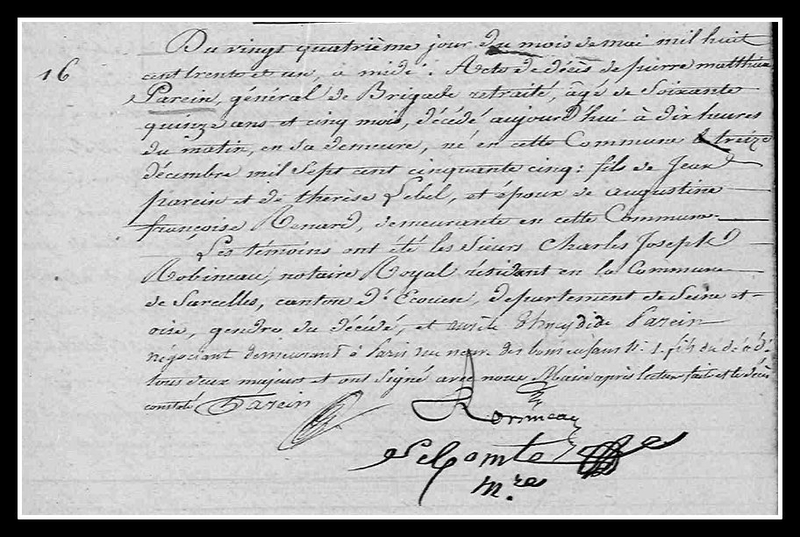 Du vingt quatrième jour du mois de mai mil huit
16
cent trente et un, à midi. Acte de décès de pierre matthieu
Parein, général de Brigade retraité, agé de Soixante
quinze ans et cinq mois, décédé aujourd'hui à dix heures
du matin, en sa demeure, né en cette Commune le treize
décembre mil Sept cent cinquante cinq : fils de Jean
parein et de thérèse Lebel, et époux de augustine
françoise Renard, demeurante en cette Commune.
Les témoins ont été les Sieurs Charles Joseph
Robineau, notaire Royal résidant en la Commune
de Sarcelles, canton d'Ecouen, département de Seine et
oise, gendre du décédé, et Parein
négociant demeurant à Paris rue neuve des bons enfans N. 1. fils du décédé
tous deux majeurs et ont Signé avec nous Maire après lecture faite et le décès
constaté Parein
Robineau
Lecomte
m.re